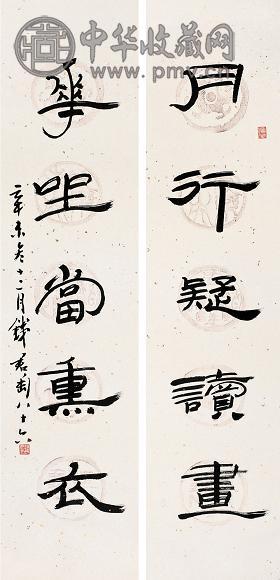 中华收藏网
月行疑讀畫
華坐當熏衣
辛未冬十二月錢君匋八十六